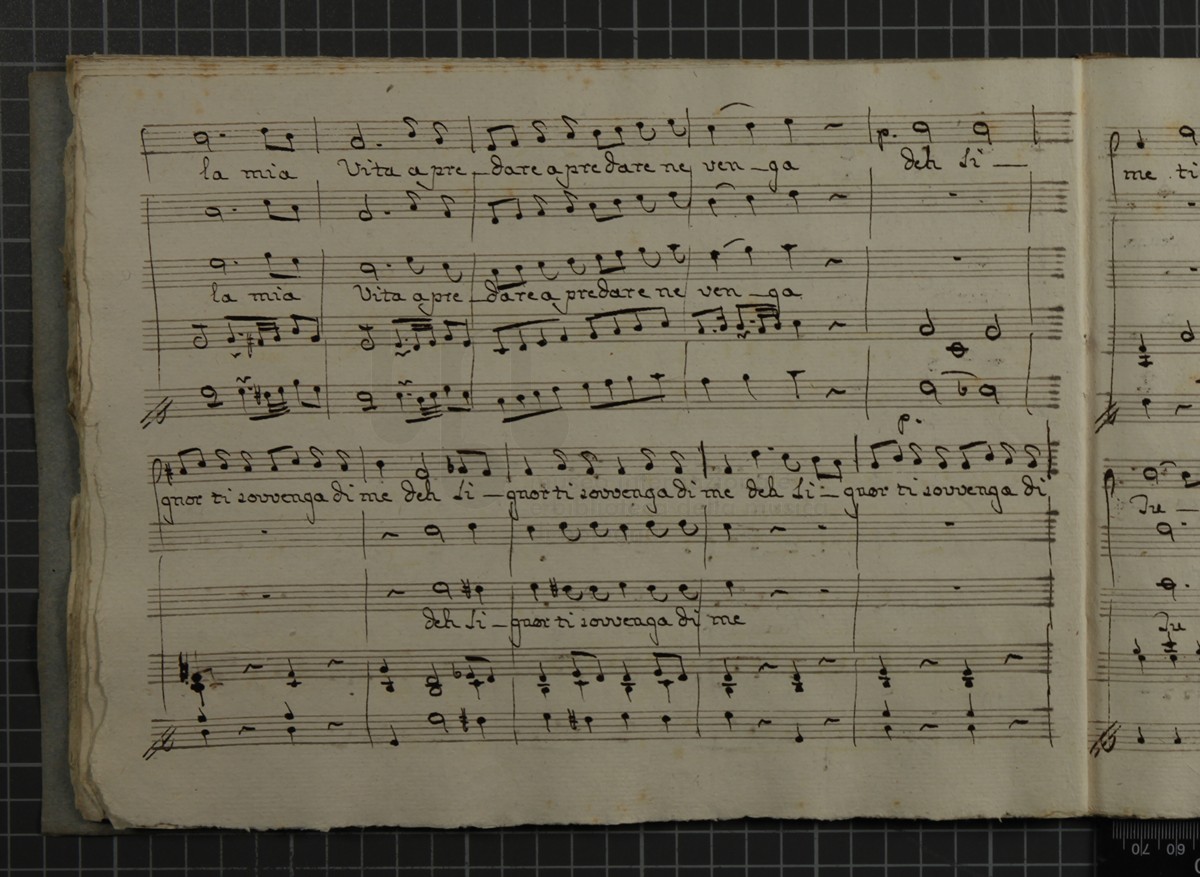 la mia Vita a pre_dare a predare ne ven_ga deh Si_
la mia Vita a pre_dare a predare ne ven_ga
p.
gnor ti sovvenga di me deh Si_gnor ti sovvenga di me deh Si_gnor ti sovvenga di
deh Si_gnor ti sovvenga di me
me ti
Tu_
Tu
60 70